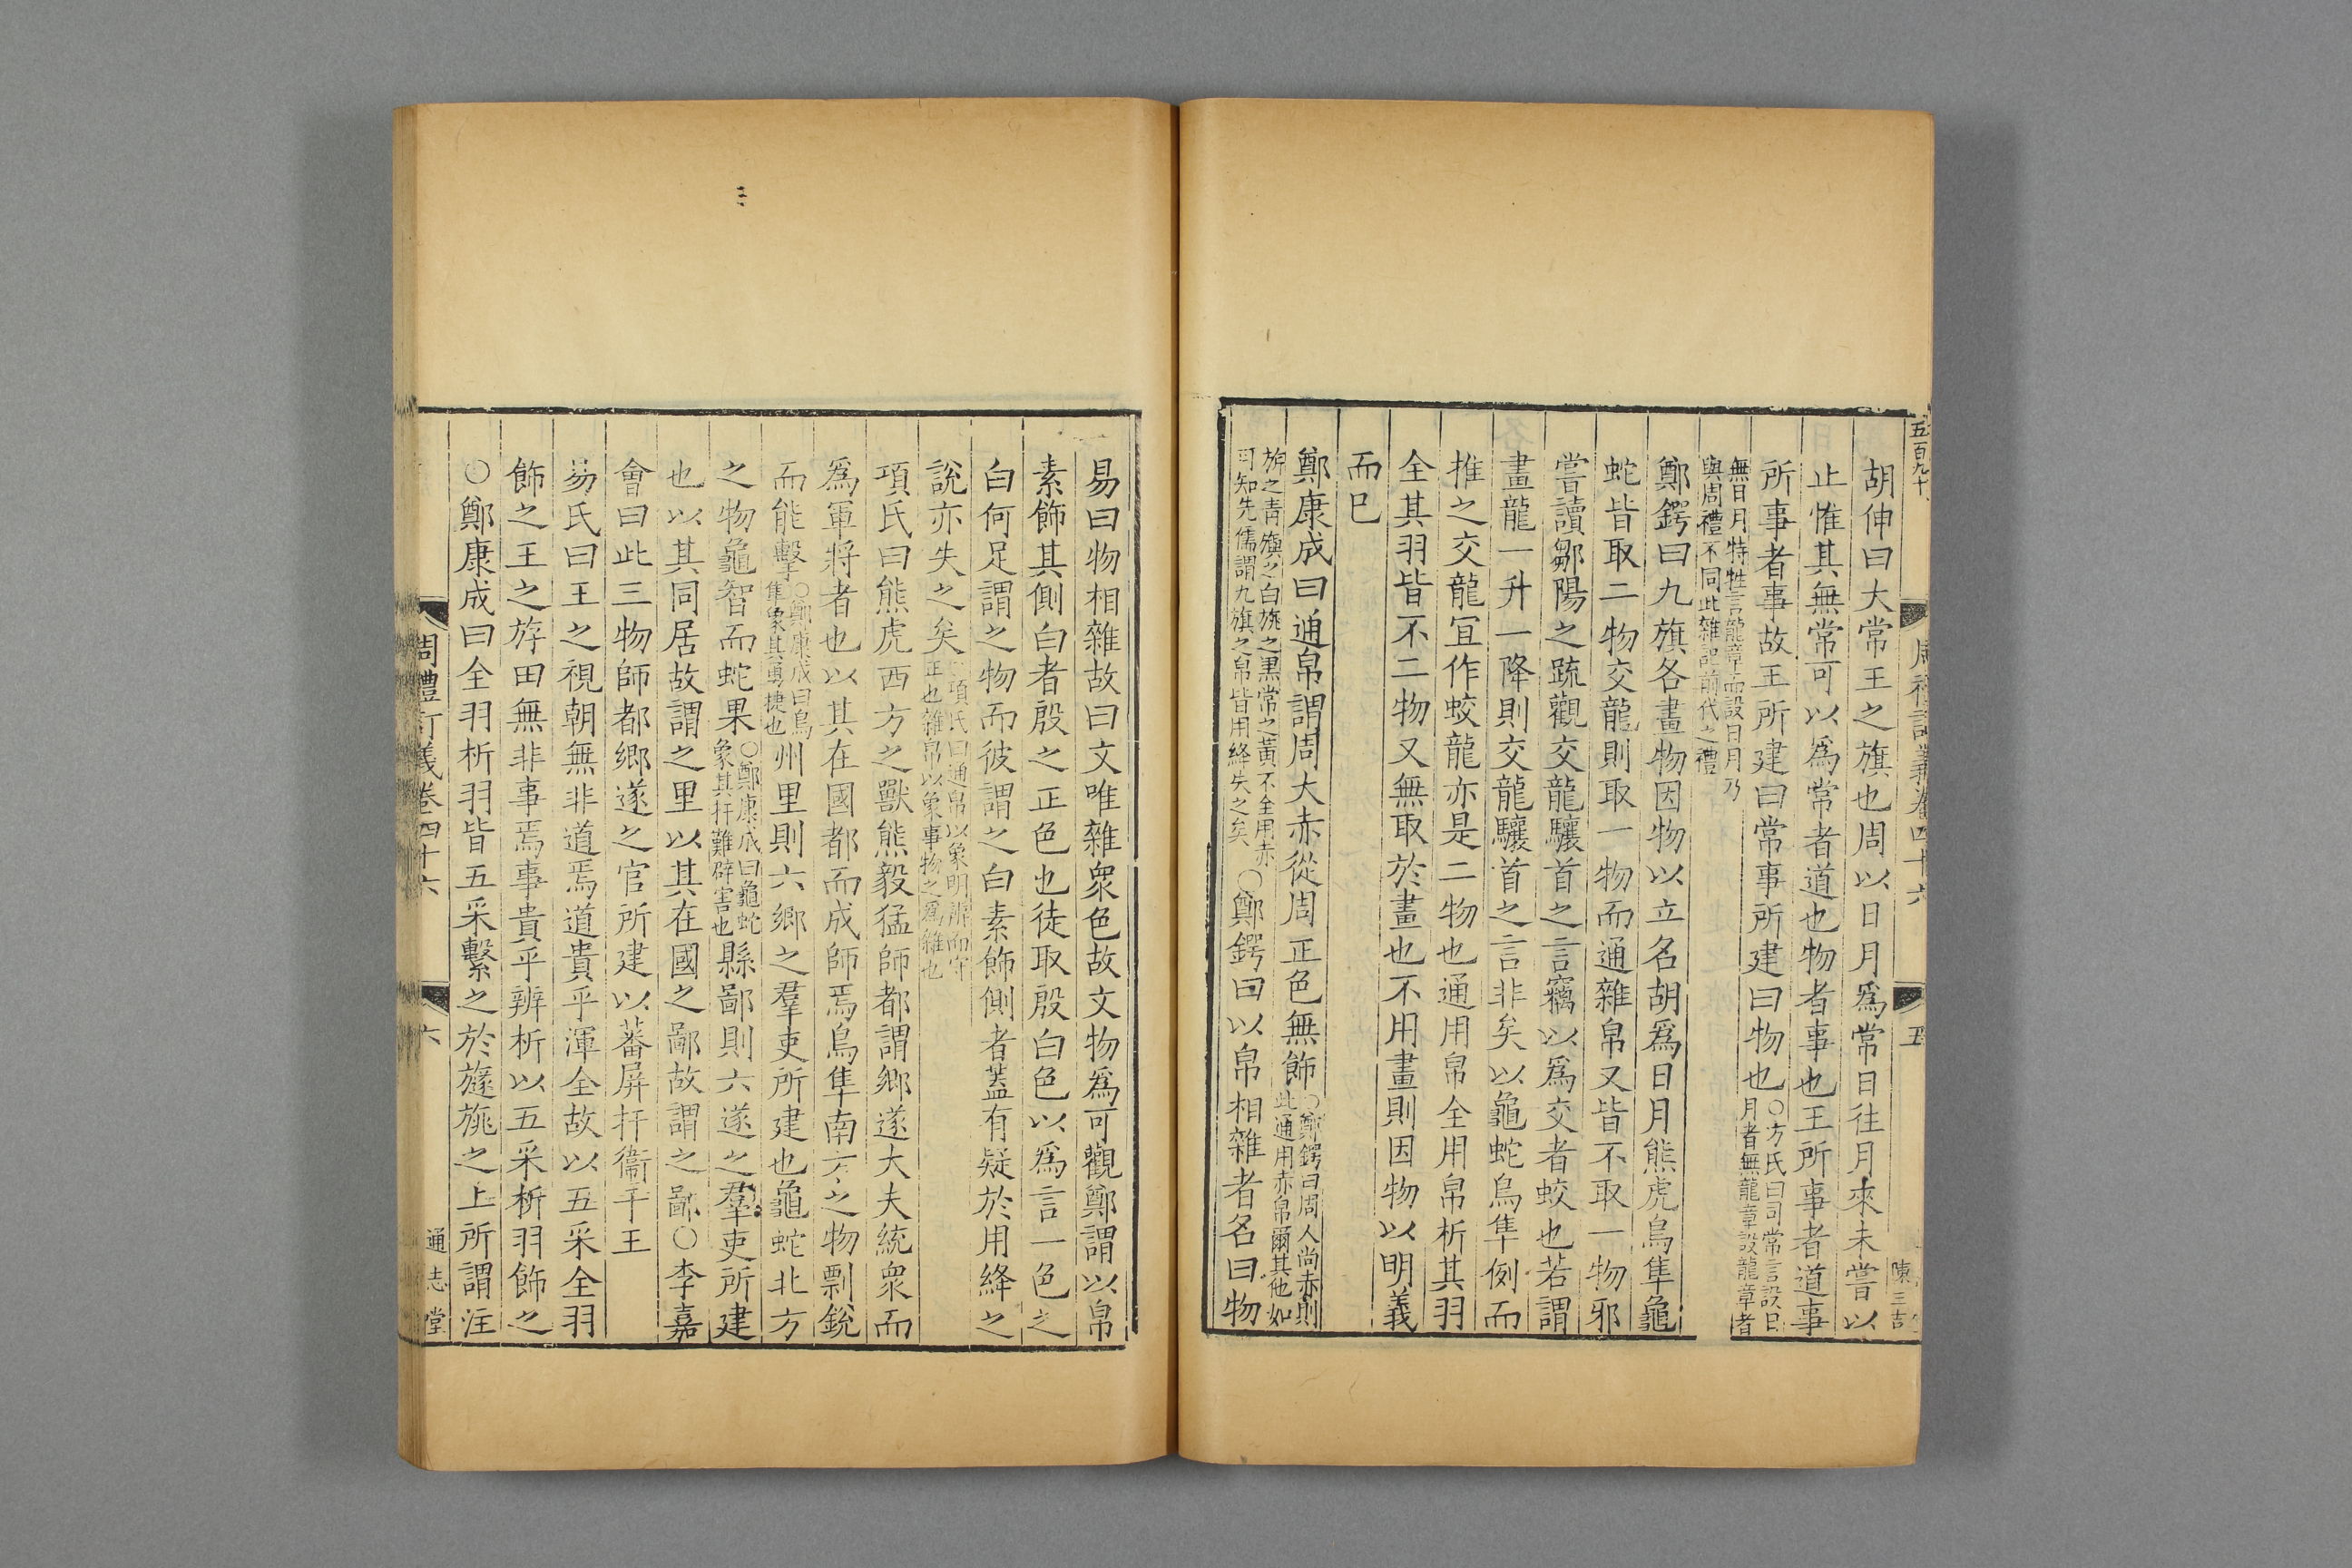 五百九十
周禮訂義卷四十六
五
陳三吉
胡伸曰大常王之旗也周以日月爲常日往月來未嘗以
止惟其無常可以爲常者道也物者事也王所事者道事
所事者事故王所建曰常事所建曰物也○方氏曰司常言設日
月者無龍章設龍章者
無日月特牲言龍章而設日月乃
與周禮不同此雜記前代之禮
鄭鍔曰九旗各畫物因物以立名胡爲日月熊虎鳥隼龜
蛇皆取二物交龍則取一物而通雜帛又皆不取一物邪
嘗讀鄒陽之疏觀交龍驤首之言竊以爲交者蛟也若謂
畫龍一升一降則交龍驤首之言非矣以龜蛇鳥隼例而
推之交龍冝作蛟龍亦是二物也通用帛全用帛析其羽
全其羽皆不二物又無取於畫也不用畫則因物以明義
而巳
鄭康成曰通帛謂周大赤從周正色無飾○鄭鍔曰周人尚赤則
此通用赤帛爾其他如
旂之青旟之白旐之黑常之黃不全用赤
可知先儒謂九旗之帛皆用絳失之矣
○鄭鍔曰以帛相雜者名曰物
易曰物相雜故曰文唯雜衆色故文物爲可觀鄭謂以帛
素飾其側白者殷之正色也徒取殷白色以爲言一色之
白何足謂之物而彼謂之白素飾側者蓋有疑於用絳之
說亦失之矣○項氏曰通帛以象明辨而守
正也雜帛以象事物之爲雜也
項氏曰熊虎西方之獸熊毅猛師都謂鄉遂大夫統衆而
爲軍將者也以其在國都而成師焉鳥隼南方之物剽銳
而能擊○鄭康成曰鳥
隼象其勇捷也
州里則六鄉之羣吏所建也龜蛇北方
之物龜智而蛇果○鄭康成曰龜蛇
象其扞難辟害也
縣鄙則六遂之羣吏所建
也以其同居故謂之里以其在國之鄙故謂之鄙○李嘉
會曰此三物師都鄉遂之官所建以蕃屏扞衞乎王
昜氏曰王之視朝無非道焉道貴乎渾全故以五采全羽
飾之王之斿田無非事焉事貴乎辨析以五采析羽飾之
○鄭康成曰全羽析羽皆五采繫之於旞旌之上所謂注
周禮訂義卷四十六
六
通志堂